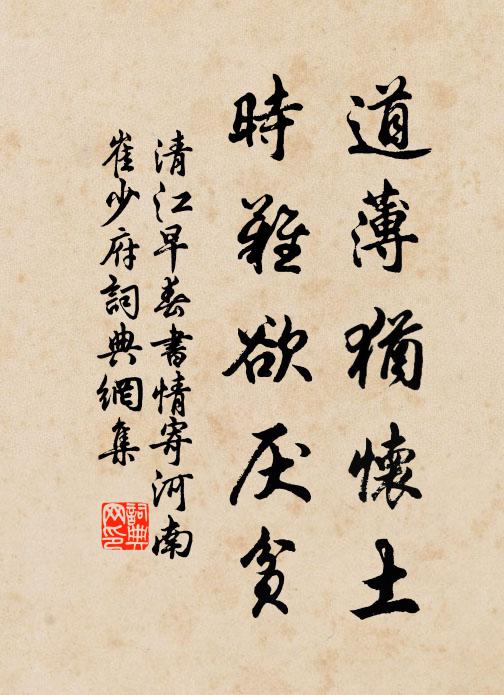 道薄猶懷土
時難欲厌貧
清江早春書情寄河南
崔少府詞典網集
詞典网印